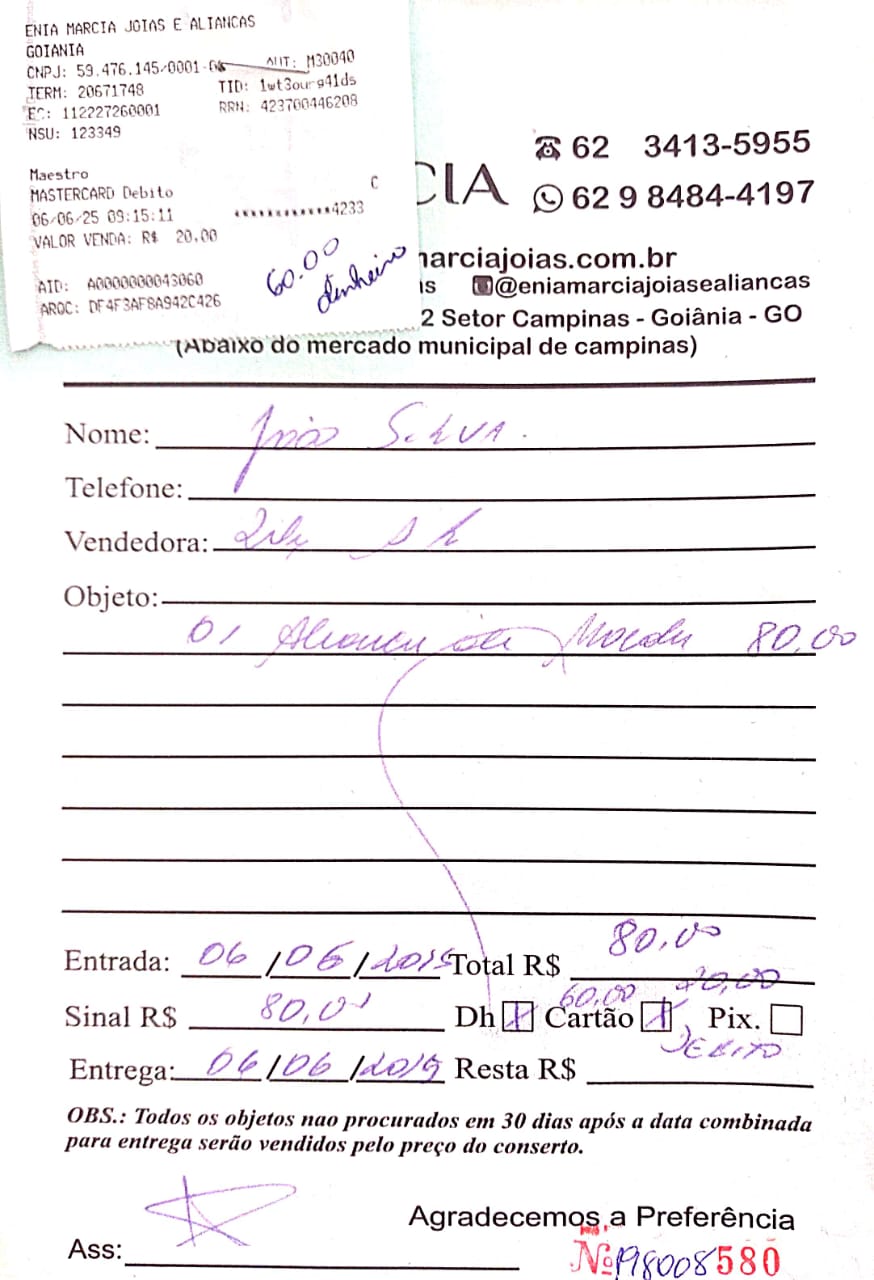 ENIA MARCIA JOIAS E ALIANCAS
GOIANIA
CNPJ: 59.476.145/0001-
AUT: M30040
TERM: 20671748
TID: 1wt3ourg41ds
EC: 112227260001
RRN: 423700446208
NSU: 123349
Maestro
C
MASTERCARD Debito
06/06/25 09:15:11 ************4233
VALOR VENDA: R$ 20,00
60.00
dinheiro
AID: A0000000043060
ARQC: DF4F3AF8A942C426
CIA
62 3413-5955
62 9 8484-4197
marciajoias.com.br
as @eniamarciajoiasealiancas
2 Setor Campinas - Goiânia - GO
(Abaixo do mercado municipal de campinas)
Nome: João SiLVA.
Telefone:
Vendedora:
Objeto:
01 Aliança de Moeda 80,00
Entrada: 06/06/2025 Total R$ 80,00
60,00 20,00
Sinal R$ 80,00 Dh X Cartão X Pix.
DEBITO
Entrega: 06/06/2025 Resta R$
OBS.: Todos os objetos nao procurados em 30 dias após a data combinada
para entrega serão vendidos pelo preço do conserto.
Agradecemos a Preferência
Ass:
Nº 198008580